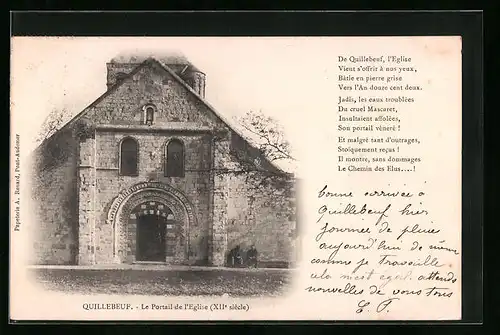 De Quillebeuf, l'Eglise
Vient s'offrir à nos yeux,
Bâtie en pierre grise
Vers l'An douze cent deux.
Jadis, les eaux troublées
Du cruel Mascaret,
Insultaient affolées,
Son portail vénéré !
Et malgré tant d'outrages,
Stoïquement reçus !
Il montre, sans dommages
Le Chemin des Elus....!
Papeterie A. Renard, Pont-Audemer
bonne arrivée à
Quillebeuf hier
journée de pluie
aujourd'hui de même
comme je Travaille
cela m'est égal attends
nouvelles de vous Tous
QUILLEBEUF. - Le Portail de l'Eglise (XIIe siècle)